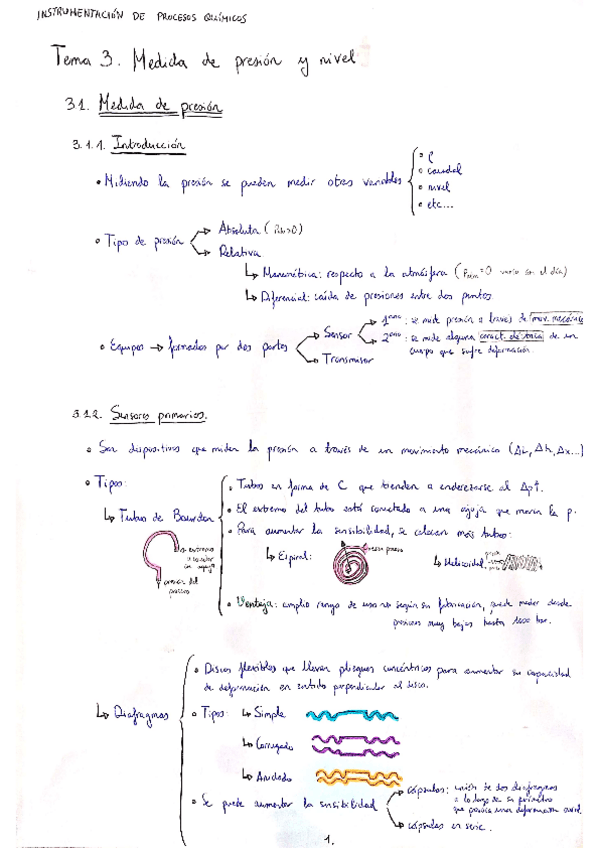 INSTRUMENTACIÓN DE PROCESOS QUÍMICOS
Tema 3. Medida de presión y nivel
3.1. Medida de presión
3.1.1. Introducción
• Midiendo la presión se pueden medir otras variables
• ρ
• caudal
• nivel
• etc...
• Tipo de presión
→ Absoluta (
→ Relativa
↳ Manométrica: respecto a la atmósfera (Patm=0 varía en el día)
↳ Diferencial: caída de presiones entre dos puntos
• Equipos → formados por dos partes
→ Sensor
→ 1arios: se mide presión a través de mov. mecánico
→ 2arios: se mide alguna caract. de un
cuerpo que sufre deformación.
→ Transmisor
3.1.2. Sensores primarios.
• Son dispositivos que miden la presión a través de un movimiento mecánico (ΔL, Δh, Δx...)
• Tipos:
↳ Tubos de Bourdon
• Tubos en forma de C que tienden a enderezarse al Δp↑.
• El extremo del tubo está conectado a una aguja que marca la p.
• Para aumentar la sensibilidad, se colocan más tubos:
↳ Espiral:
↳ Helicoidal:
→ extremo
proceso
• Ventaja: amplio rango de uso según su fabricación, puede medir desde
presiones muy bajas hasta 1000 bar.
↳ Diafragmas
• Discos flexibles que llevan pliegues concéntricos para aumentar su capacidad
de deformación en sentido perpendicular al disco.
• Tipos: ↳ Simple
↳ Corrugado
↳ Anidado
• Se puede aumentar la sensibilidad
→ cápsulas: unión de dos diafragmas
a lo largo de su perímetro
que provoca una deformación
→ cápsulas en serie.
1.